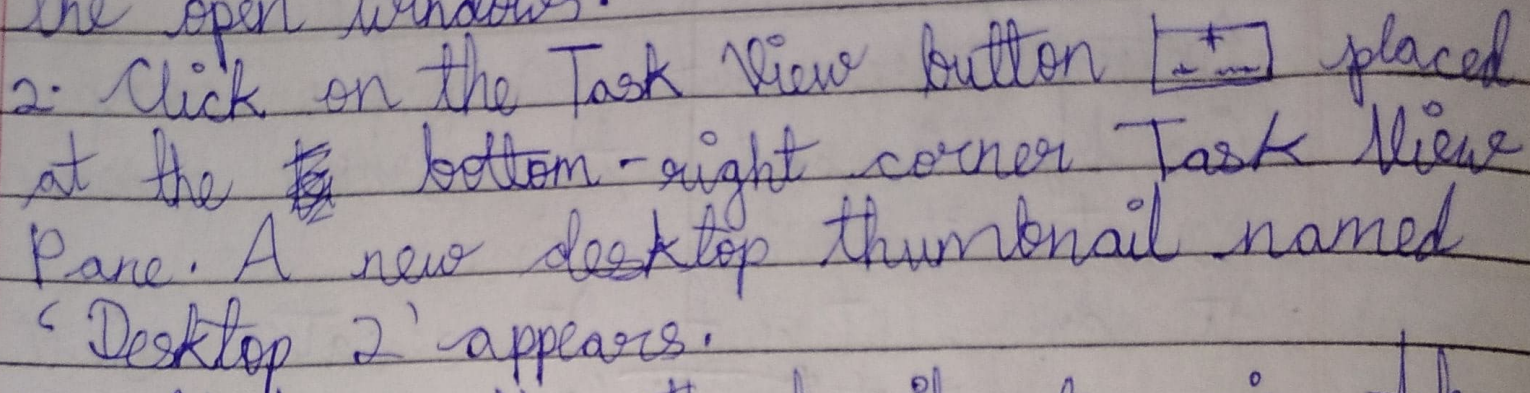 the open windows.
2. Click on the Task View button placed
at the bottom-right corner Task View
Pane. A new desktop thumbnail named
'Desktop 2' appears.